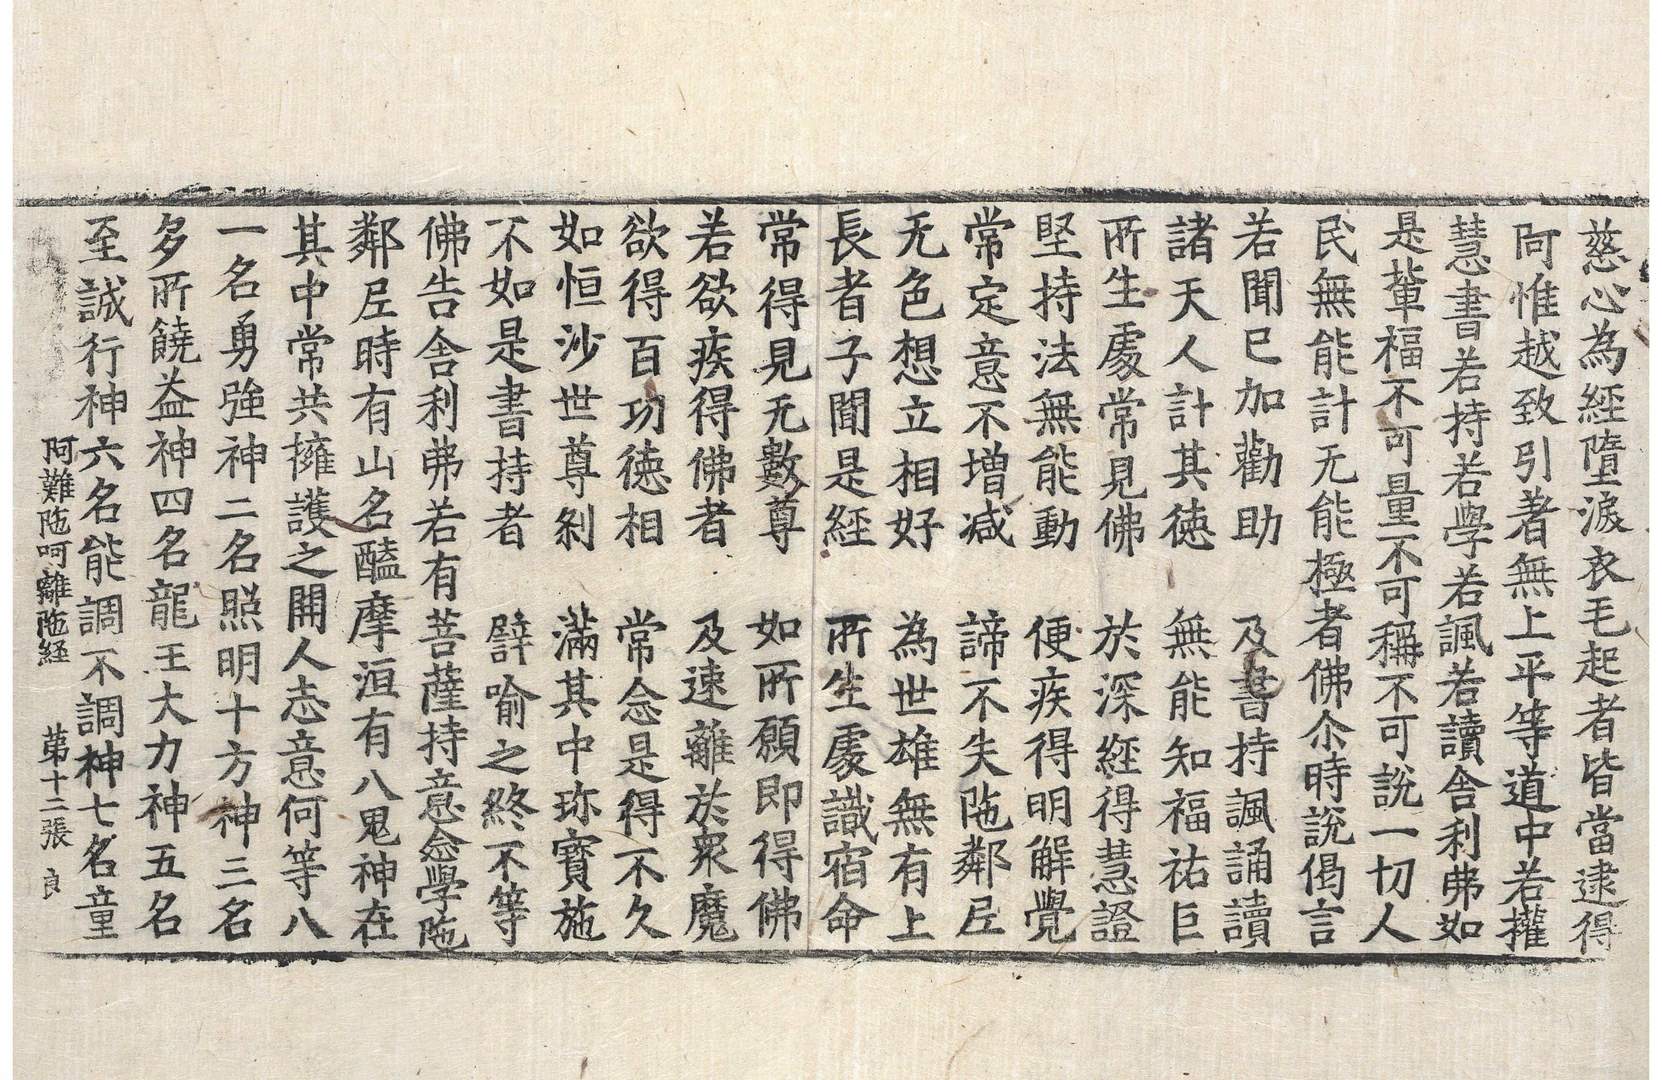 慈心為經墮淚衣毛起者皆當逮得
阿惟越致引著無上平等道中若擁
慧書若持若學若諷若讀舍利弗如
是輩福不可量不可稱不可說一切人
民無能計无能極者佛尒時說偈言
若聞已加勸助 及書持諷誦讀
諸天人計其徳 無能知福祐巨
所生處常見佛 於深經得慧證
堅持法無能動 便疾得明解覺
常定意不增減 諦不失陁鄰尼
无色想立相好 為世雄無有上
長者子聞是經 所生處識宿命
常得見无數尊 如所願即得佛
若欲疾得佛者 及速離於衆魔
欲得百功徳相 常念是得不久
如恒沙世尊刹 滿其中珎寳施
不如是書持者 譬喻之終不等
佛告舍利弗若有菩薩持意念學陁
鄰尼時有山名醯摩洹有八鬼神在
其中常共擁護之開人志意何等八
一名勇強神二名照明十方神三名
多所饒益神四名龍王大力神五名
至誠行神六名能調不調神七名童
阿難陁呵離陁経 苐十二張 良